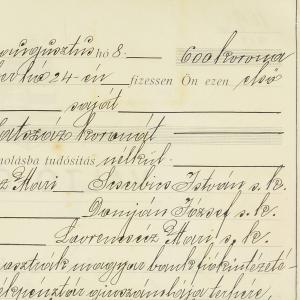 augusztus hó 8. 600 korona
hó 24-én fizessen Ön ezen első
saját
hatszáz koronát
molásba tudósítás nélkül
Mari Szerbin István s. k.
Damján József s. k.
Lavrencsicz Mari, s. k.
osztrák magyar bank fiókintézeté